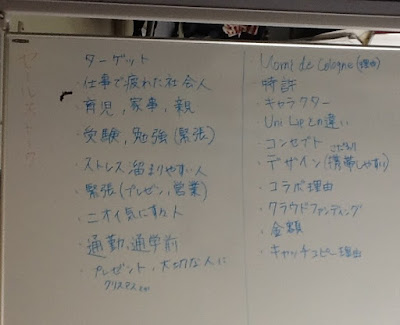 セールストーク
ターゲット
・仕事で疲れた社会人
・育児, 家事, 親
・受験, 勉強 (緊張)
・ストレス溜まりやすい人
・緊張(プレゼン, 営業)
・ニオイ気にする人
・通勤, 通学前
・プレゼント・大切な人に
クリスマス
・Uomi de Cologne (理由)
・特許
・キャラクター
・Uni Lipとの違い
・コンセプト
こだわり
・デザイン(携帯しやすい)
・コラボ理由
・クラウドファンディング
・金額
・キャッチコピー理由